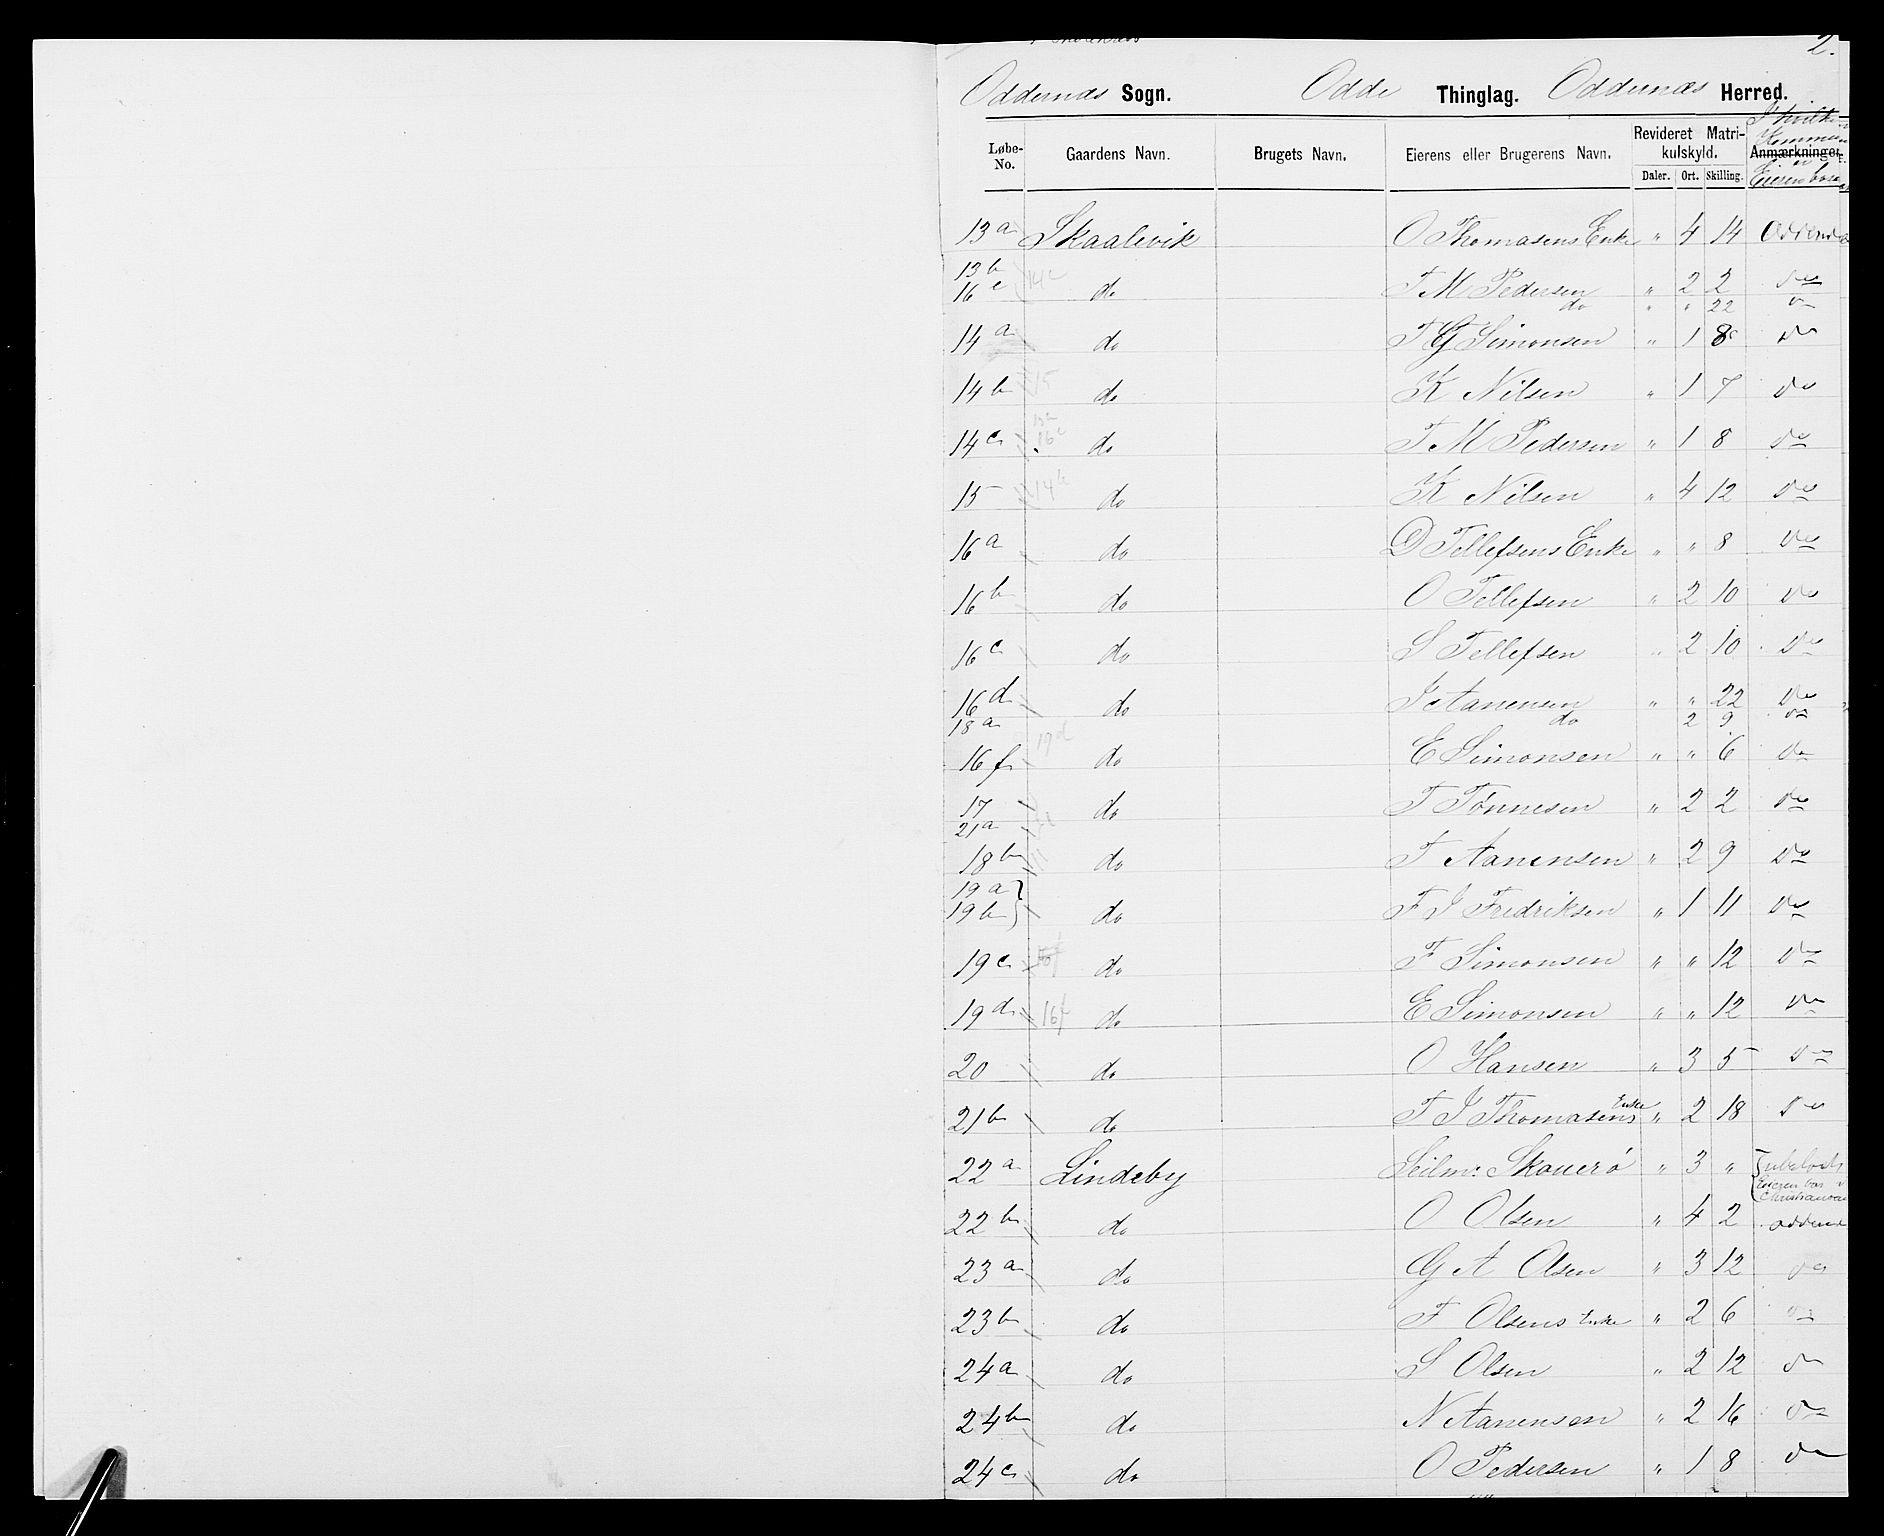 2.
Oddernæs Sogn. Odde Thinglag. Oddernæs Herred.
Løbe-No. Gaardens Navn. Brugets Navn. Eierens eller Brugerens Navn. Revideret Matrikulskyld. Daler. Ort. Skilling. Anmærkninger.
13a Skaalevik O Thomasens Enke " 4 14
13b
16e 14c do T M Pedersen " 2 2 do
do " " 22 do
14a do T G Simonsen " 1 8 do
14b 15 do K Nilsen " 1 7 do
14c 16e do T M Pedersen " 1 8 do
15 14b do K Nilsen " 4 12 do
16a do D Tellefsens Enke " " 8 do
16b do O Tellefsen " 2 10 do
16c do S Tellefsen " 2 10 do
16d do J Aanensen " " 22 do
18a do 2 9 do
16f 19d do E Simonsen " " 6 do
17 do T Tønnesen " 2 2 do
21a
18b do T Aanensen " 2 9 do
19a
19b do F J Fredriksen " 1 11 do
19c do F Simonsen " " 12 do
19d 16f do E Simonsen " " 12 do
20 do O Hansen " 3 5 do
21b do T J Thomasens Enke " 2 18 do
22a Lindeby Seilm: Skouerø " 3 "
Eieren bor i
22b do O Olsen " 4 2
23a do G A Olsen " 3 12 do
23b do F Olsens Enke " 2 6 do
24a do S Olsen " 2 12 do
24b do N Aanensen " 2 16 do
24c do O Pedersen " 1 8 do